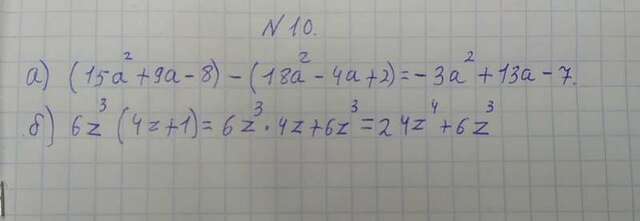 N 10.
а) (15a² + 9a - 8) - (18a² - 4a + 2) = - 3a² + 13a - 7.
б) 6z³ (4z + 1) = 6z³ · 4z + 6z³ = 24z⁴ + 6z³